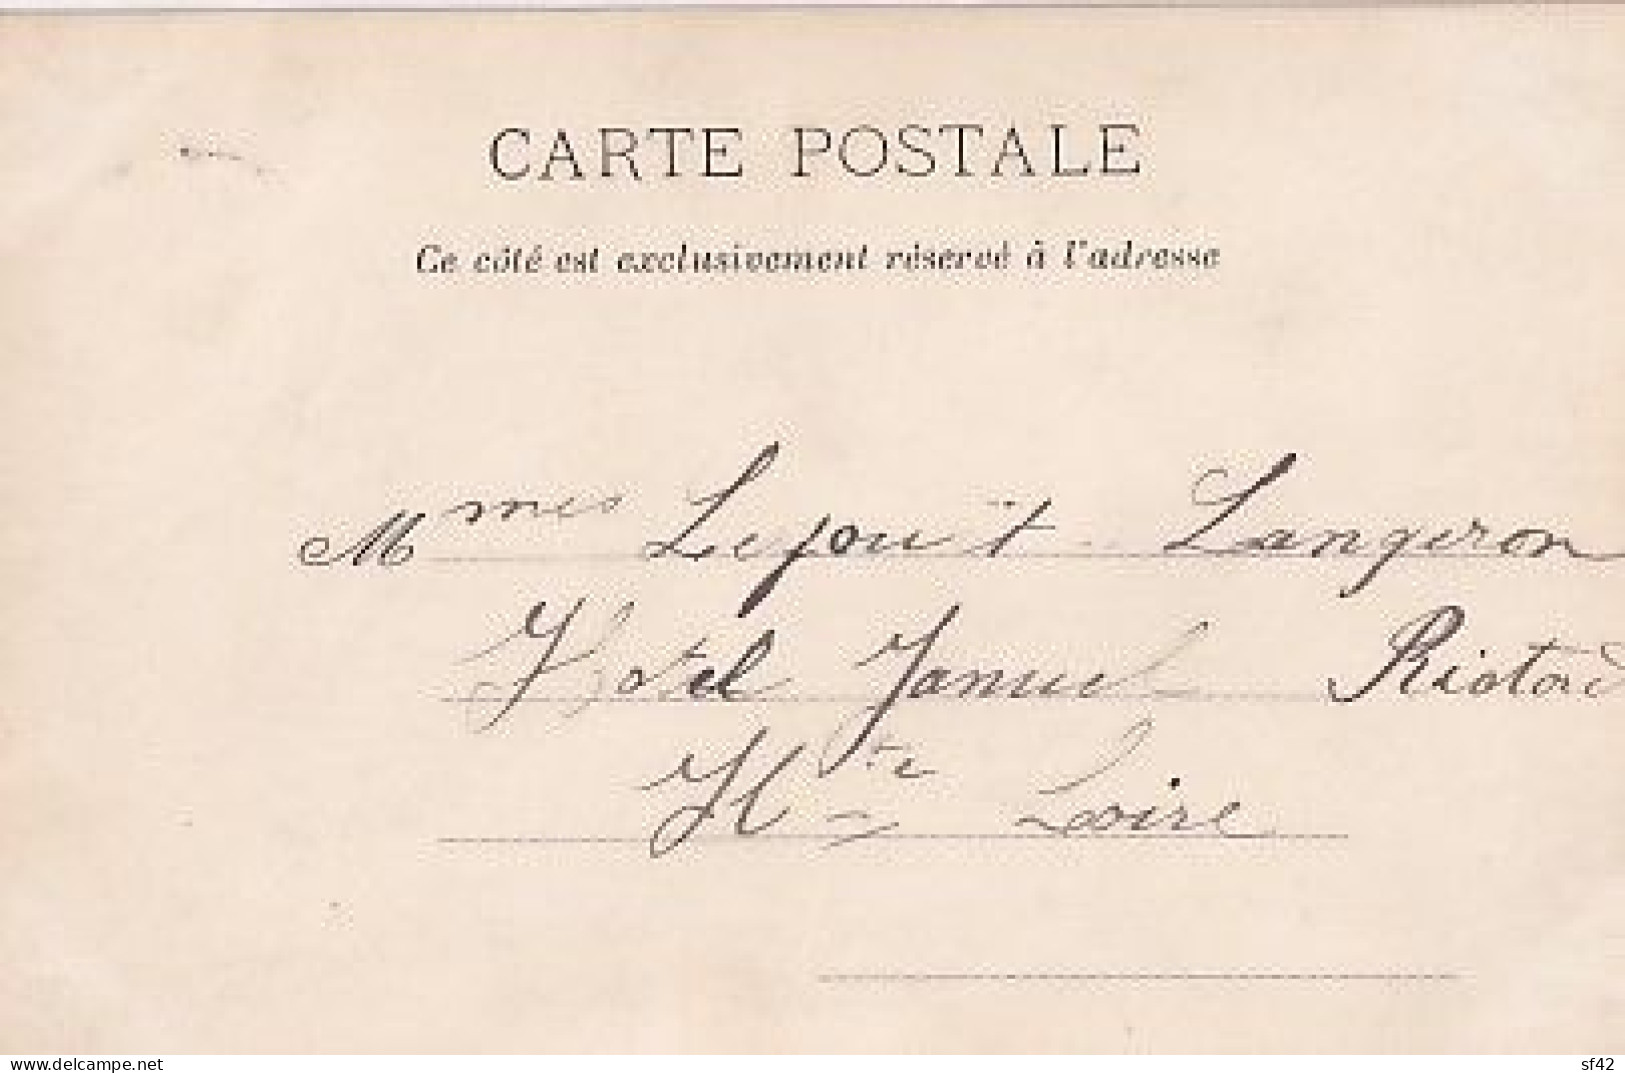 CARTE POSTALE
Ce côté est exclusivement réservé à l'adresse
Mmes Langeron
Hotel Januel Riotord
Hte Loire
delcampe.net sf42